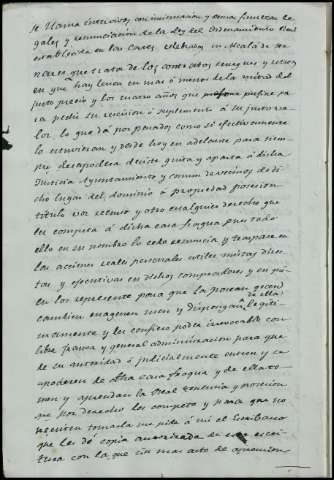 se llama intervivos con insinuacion y demas firmezas le-
gales y renunciacion de la Ley del ordenamiento Real
establecida en las Cortes celebradas en Alcalá de He-
nares que trata de los contratos de ventas y otros
en que hay lesion en mas ó menos de la mitad del
justo precio y los cuatro años que prefine pa-
ra pedir su rescision ó suplemento á su justo va-
lor lo que dá por pasados como si efectivamente
lo estuvieran y desde hoy en adelante para siem-
pre desapodera desiste quita y aparta á dicha
Justicia Ayuntamiento y comun de vecinos de di-
cho lugar del dominio ó propiedad posesion
titulo voz recurso y otro cualquier derecho que
les competa á dicha casa fragua pues todo
ello en su nombre lo cede renuncia y traspasa con
las acciones reales personales utiles mistas direc-
tas y ejecutivas en dichos compradores y en quien
los represente para que la posean gocen
cambien enagenen usen y dispongan de ella legiti-
mamente y les confiere poder irrevocable con
libre franca y general administracion para que
de su autoridad ó judicialmente entren y se
apoderen de dicha casa fragua y de ella to-
men y aprendan la Real tenencia y posesion
que por derecho les compete y para que no
necesiten tomarla me pide á mi el Escribano
que les dé copia autorizada de esta escri-
tura con la que sin mas acto de aprension